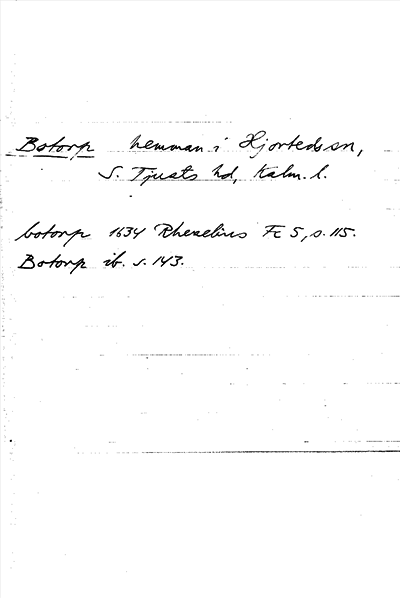 Botorp hemman i Hjorteds sn,
S. Tjusts hd, Kalm. l.
botorp 1634 Rhezelius Fc 5, s. 115.
Botorp ib. s. 143.